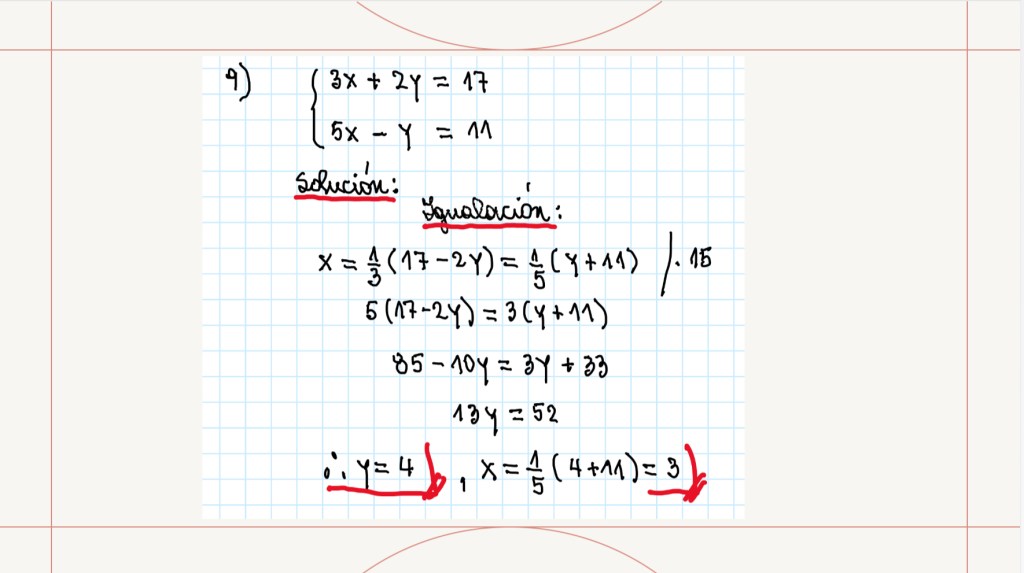 9)
3x + 2y = 17
5x - y = 11
Solución:
Igualación:
x = 1/3 (17 - 2y) = 1/5 (y + 11) /. 15
5(17 - 2y) = 3(y + 11)
85 - 10y = 3y + 33
13y = 52
∴ y = 4 , x = 1/5 (4 + 11) = 3